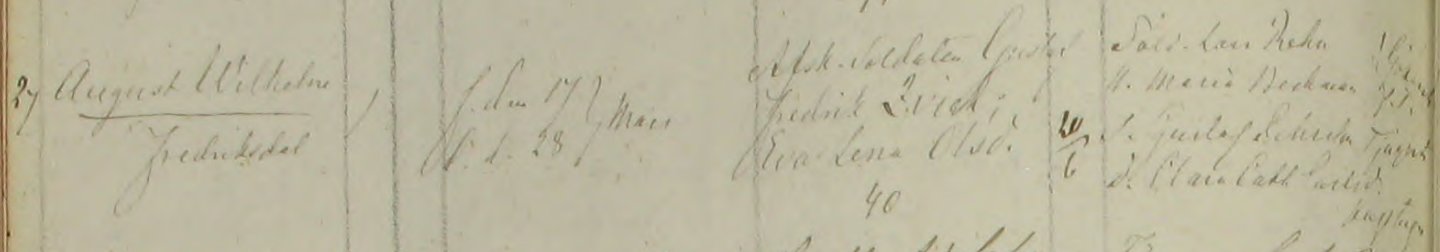 27 August Wilhelm
Fredriksdal
f. den 17
d. d. 28 } Mars
Afsk. Soldaten Gustaf
Fredrik Qvick;
Eva Lena Olsd.
40
20
6
Sold. Lars Rehn
H. Maria Beckman
d. Gustaf
d. Clara Cath.